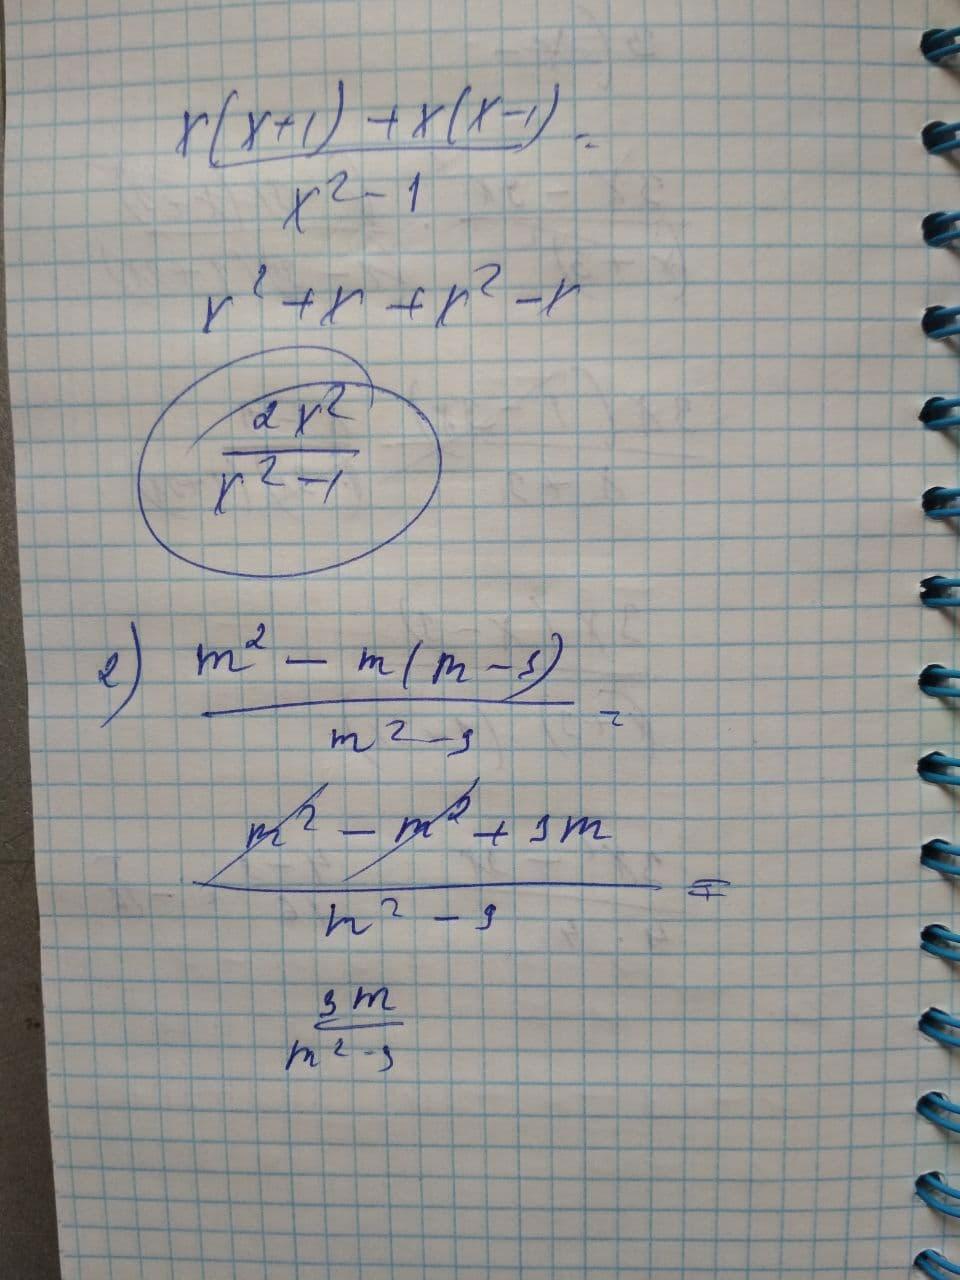 x(x+1) + x(x-1) =
x² - 1
x² + x + x² - x
2x²
x² - 1
2) m² - m(m - 3) =
m² - 9
m² - m² + 3m =
m² - 9
3m
m² - 9